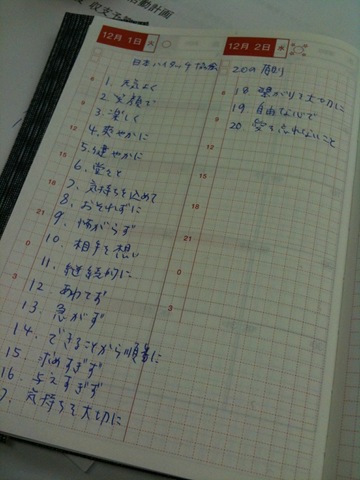 動計画
収支予
12月 1日 火
日本ハイタッチ協会
1. 元気よく
2. 笑顔で
3. 楽しく
4. 爽やかに
5. 健やかに
6. 堂々と
7. 気持ちを込めて
8. おそれずに
9. 怖がらず
10. 相手を想い
11. 継続的に
12 あわてず
13. 急がず
14. できることから順番に
15. 求めすぎず
16. 与えすぎず
7. 気持ちを大切に
18
21
0
3
12月 2日 水
20の原則
18. 繋がりを大切に
19. 自由な心で
20 を忘れないこと
12
15
18
21
0
3